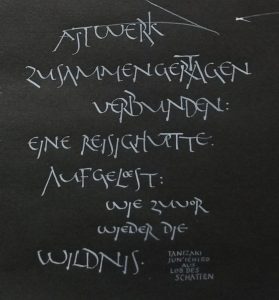 ASTWERK
ZUSAMMENGERTAGEN
VERBUNDEN:
EINE REISIGHÜTTE.
AUFGELOEST:
WIE ZUVOR
WIEDER DIE
WILDNIS.
TANIZAKI
JUN'ICHIRO
AUS
LOB DES
SCHATTEN